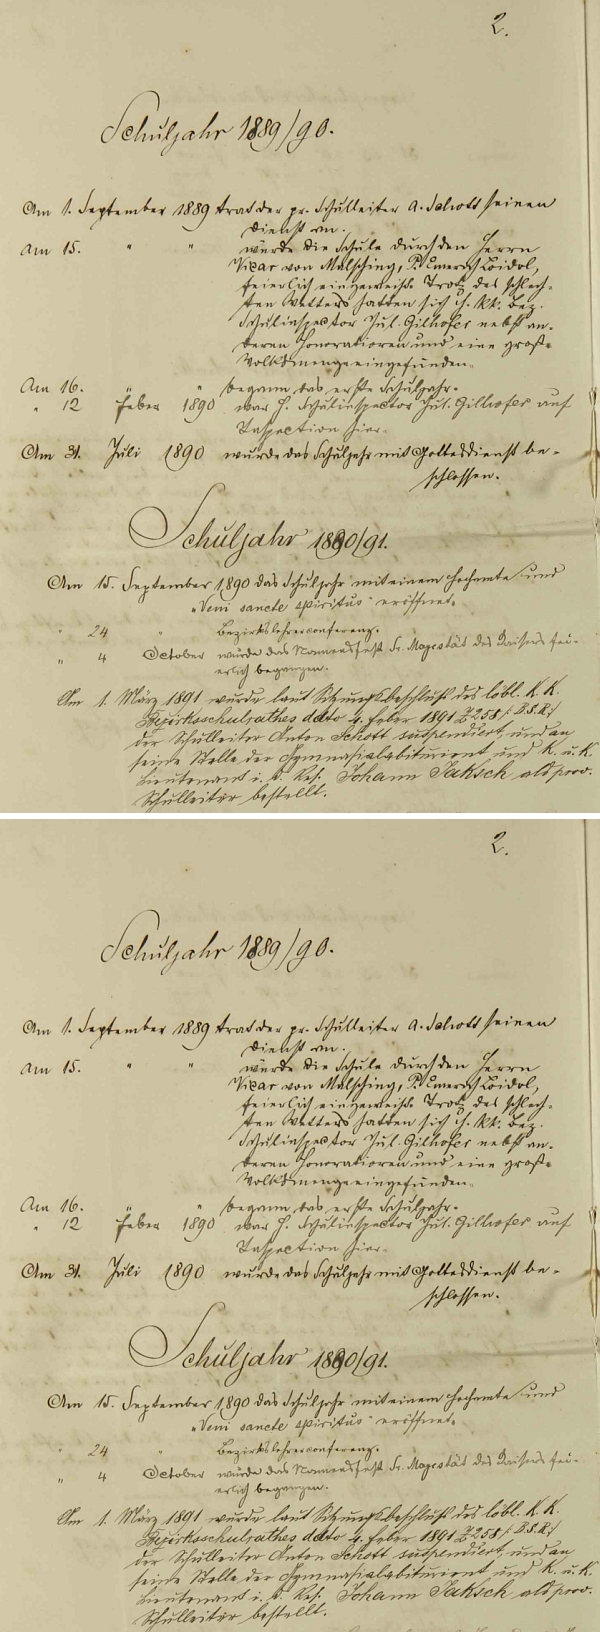 2.
Schuljahr 1889/90.
Am 1. September 1889 trat der pr. Schulleiter A. Schott seinen
Dienst an.
Am 15. " " wurde die Schule durch den Herrn
Vicar von Malsching, P. Emerich Loidol,
feierlich eingeweiht. Trotz des schlech-
ten Wetters hatten sich H. kk. Bez.
Schulinspector Jul. Gilhofer nebst an-
deren Honoratioren und eine große
Volksmenge eingefunden.
Am 16. " " begann das erste Schuljahr.
" 12 Feber 1890 war H. Schulinspector Jul. Gillhofer auf
Inspection hier.
Am 31. Juli 1890 wurde das Schuljahr mit Gottesdienst be-
schlossen.
Schuljahr 1890/91.
Am 15. September 1890 das Schuljahr mit einem Hochamte und
"Veni sancte spiritus" eröffnet.
" 24 " Bezirkslehrerconferenz.
" 4 October wurde das Namensfest Sr. Majestät des Kaisers fei-
erlich begangen.
Am 1. März 1891 wurde laut Sitzungsbeschluß des löbl. K. K.
Bezirksschulrathes ddto 4. Feber 1891 Z 258/: B.S.R:/
der Schulleiter Anton Schott suspendiert, und an
seine Stelle der Gymnasialabiturient und K. u. K.
Lieutenant i. d. Res. Johann Jaksch als prov.
Schulleiter bestellt.
2.
Schuljahr 1889/90.
Am 1. September 1889 trat der pr. Schulleiter A. Schott seinen
Dienst an.
Am 15. " " wurde die Schule durch den Herrn
Vicar von Malsching, P. Emerich Loidol,
feierlich eingeweiht. Trotz des schlech-
ten Wetters hatten sich H. kk. Bez.
Schulinspector Jul. Gilhofer nebst an-
deren Honoratioren und eine große
Volksmenge eingefunden.
Am 16. " " begann das erste Schuljahr.
" 12 Feber 1890 war H. Schulinspector Jul. Gillhofer auf
Inspection hier.
Am 31. Juli 1890 wurde das Schuljahr mit Gottesdienst be-
schlossen.
Schuljahr 1890/91.
Am 15. September 1890 das Schuljahr mit einem Hochamte und
"Veni sancte spiritus" eröffnet.
" 24 " Bezirkslehrerconferenz.
" 4 October wurde das Namensfest Sr. Majestät des Kaisers fei-
erlich begangen.
Am 1. März 1891 wurde laut Sitzungsbeschluß des löbl. K. K.
Bezirksschulrathes ddto 4. Feber 1891 Z 258/: B.S.R:/
der Schulleiter Anton Schott suspendiert, und an
seine Stelle der Gymnasialabiturient und K. u. K.
Lieutenant i. d. Res. Johann Jaksch als prov.
Schulleiter bestellt.